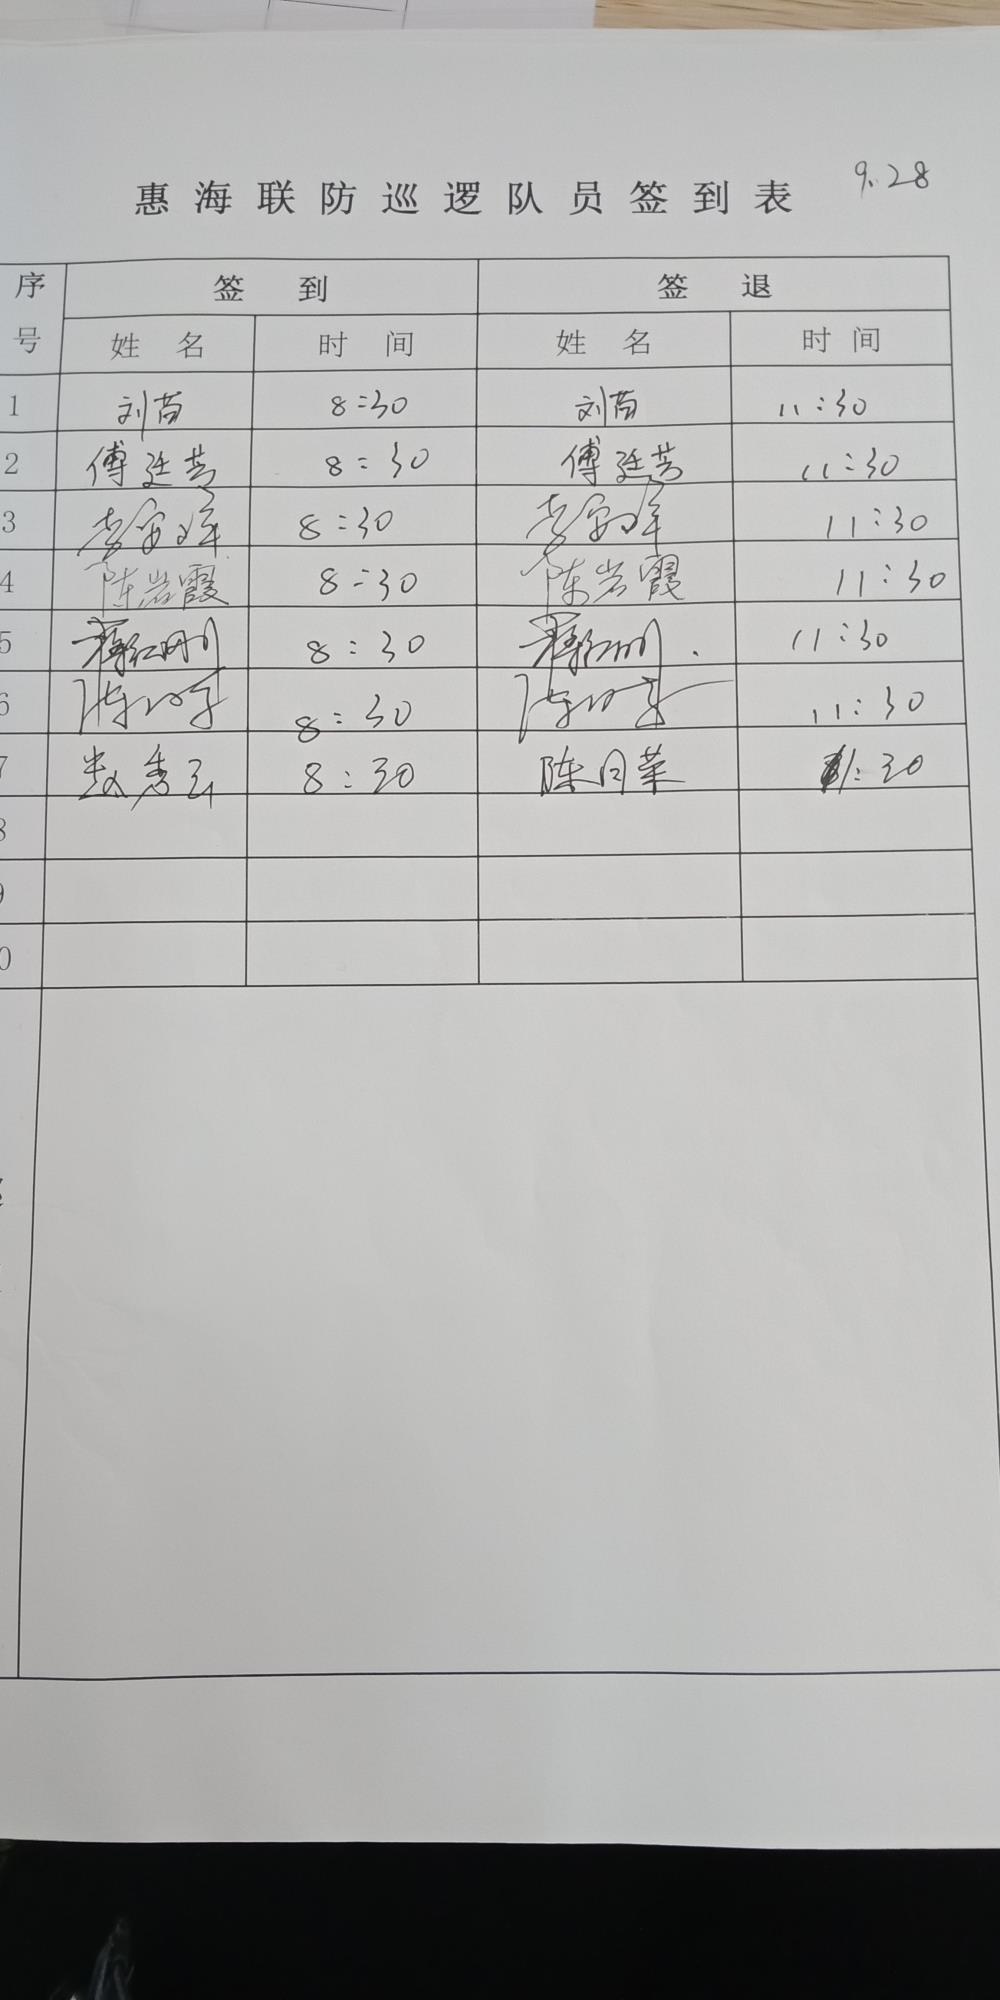 惠海联防巡逻队员签到表 9.28
序号 签到 签退
姓名 时间 姓名 时间
1 刘苗 8:30 刘苗 11:30
2 傅廷芸 8:30 傅廷芸 11:30
3 8:30 11:30
4 陈岩霞 8:30 陈岩霞 11:30
5 8:30 11:30
6 8:30 11:30
7 8:30 陈月华 11:30
8
9
0